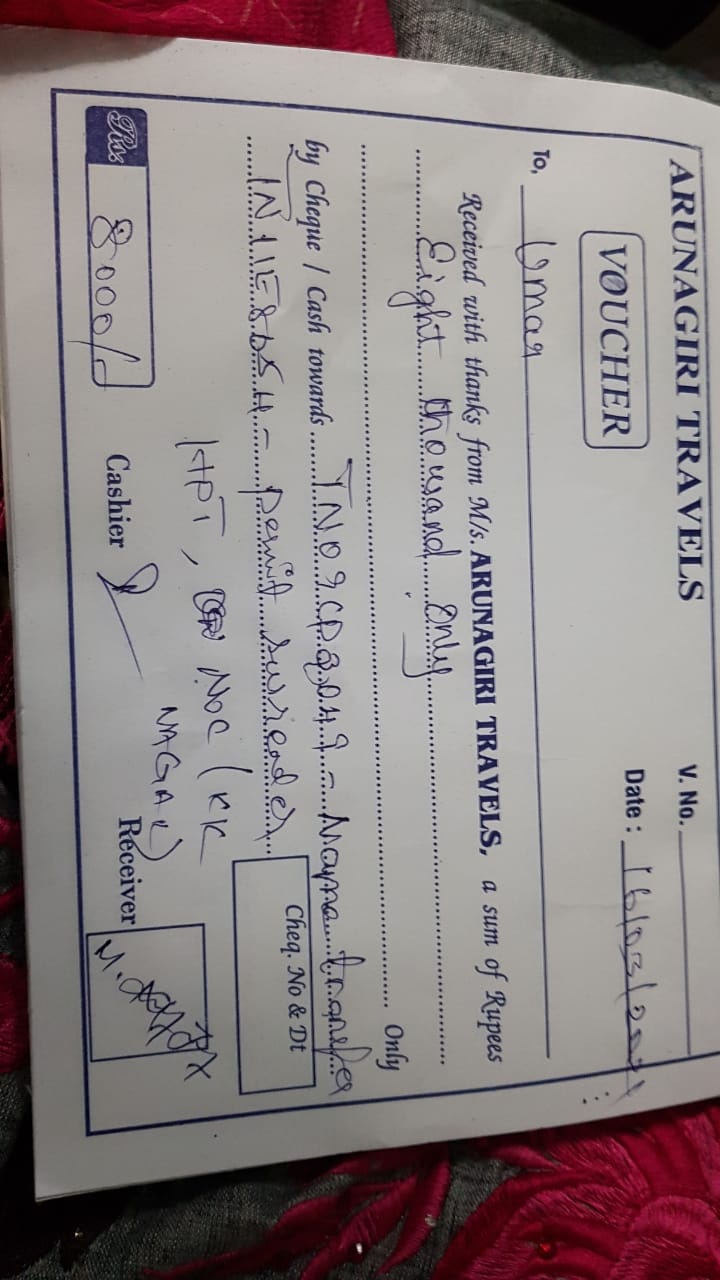 ARUNAGIRI TRAVELS
VOUCHER
V. No.
Date : 16/03/202
To, Umar
Received with thanks from M/s. ARUNAGIRI TRAVELS, a sum of Rupees
Eight thousand only
Only
by Cheque / Cash towards TN09CD8049 - Name transfer
- Permit surrender
HPT, NOC (KK
NAGAR)
Cheq. No & Dt
Rs. 8000/-
Cashier
Receiver
M.